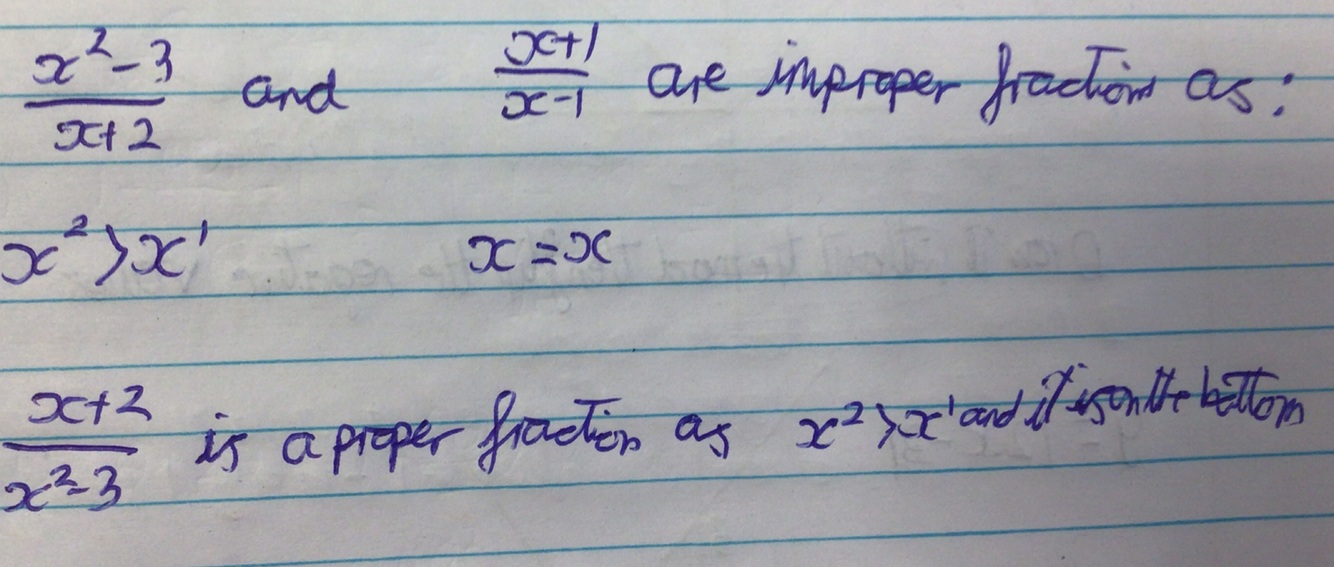 x² - 3 / x + 2 and x + 1 / x - 1 are improper fractions as:
x² > x¹ x = x
x + 2 / x² - 3 is a proper fraction as x² > x¹ and it is on the bottom